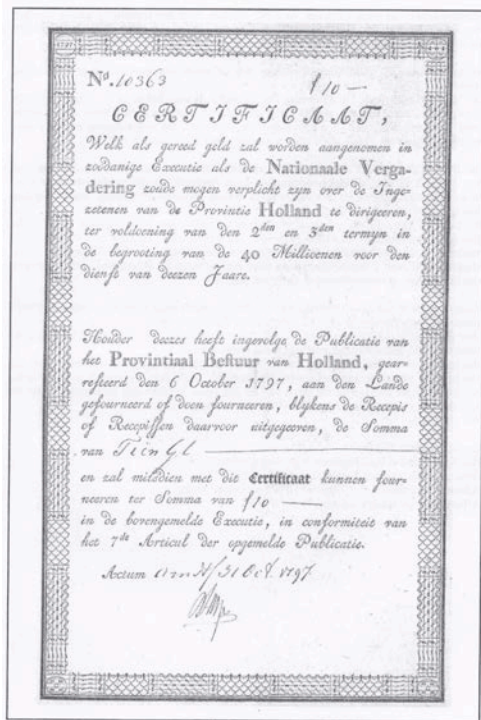 1797
No. 10363 f 10 —
CERTIFICAAT,
Welk als gereed geld zal worden aangenomen in
zoodanige Executie als de Nationaale Verga-
dering zoude mogen verplicht zyn over de Inge-
zetenen van de Provintie Holland te dirigeeren,
ter voldoening van den 2den en 3den termyn in
de begrooting van de 40 Millioenen voor den
dienst van deezen Jaare.
Houder deezes heeft ingevolge de Publicatie van
het Provintiaal Bestuur van Holland, gear-
resteerd den 6 October 1797, aan den Lande
gefourneerd of doen fourneeren, blykens de Recepis
of Recepissen daarvoor uitgegeeven, de Somma
van Tien Gl
en zal mitsdien met dit Certificaat kunnen four-
neeren ter Somma van f 10 —
in de bovengemelde Executie, in conformiteit van
het 7de Articul der opgemelde Publicatie.
Actum Amst/ 31 Oct. 1797